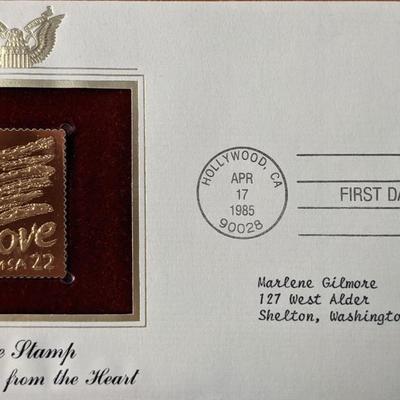 HOLLYWOOD, CA
APR
17
1985
90028
FIRST DA
ove
USA 22
Marlene Gilmore
127 West Alder
Shelton, Washington
e Stamp
from the Heart